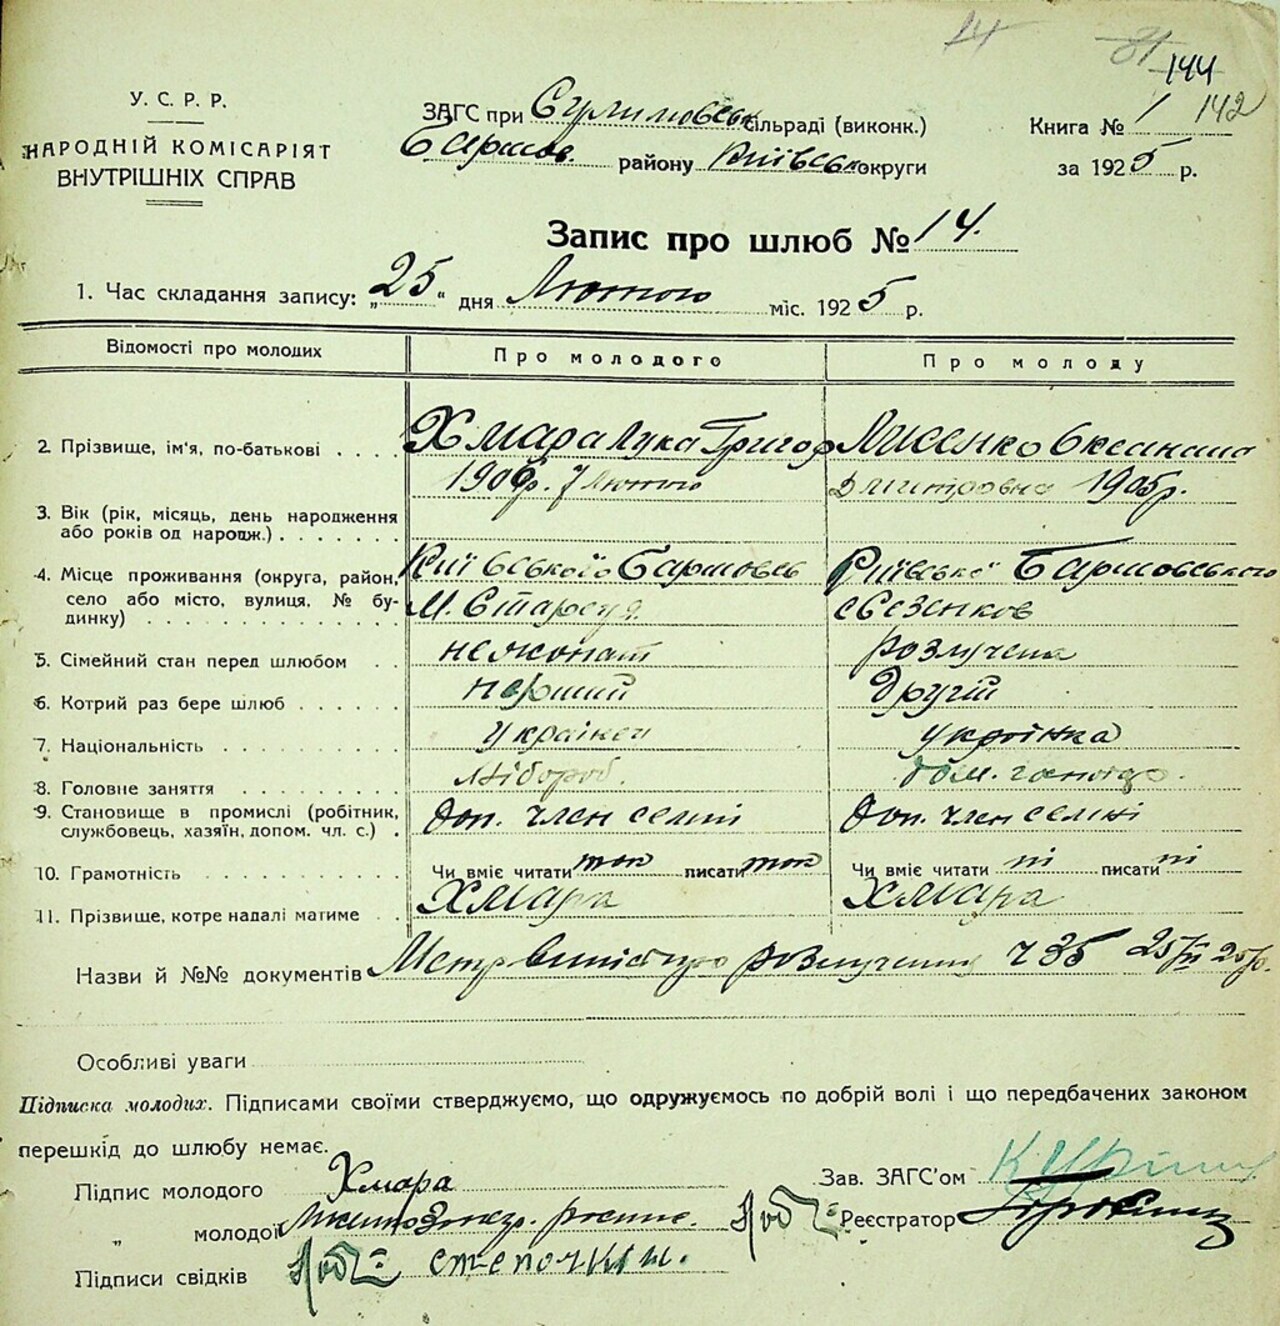 144
142
У. С. Р. Р.
НАРОДНІЙ КОМІСАРІЯТ
ВНУТРІШНІХ СПРАВ
ЗАГС при Сулимовськ сільраді (виконк.)
району Київськ округи
Книга № 1
за 1925 р.
Запис про шлюб № 14.
1. Час складання запису: „25“ дня Лютого міс. 1925 р.
Відомості про молодих
Про молодого
Про молоду
2. Прізвище, ім'я, по-батькові
Хмара Лука Григор
Лисенко Оксана
Дмитровна 1905р.
7 Лютого
3. Вік (рік, місяць, день народження
або років од народж.)
4. Місце проживання (округа, район,
село або місто, вулиця, № бу-
динку)
Київського
Київської
5. Сімейний стан перед шлюбом
нежонат
розлучена
6. Котрий раз бере шлюб
перший
другій
7. Національність
українец
українка
8. Головне заняття
Хлібороб.
дом.
9. Становище в промислі (робітник,
службовець, хазяїн, допом. чл. с.)
доп. член семії
доп. член семіі
10. Грамотність
Чи вміє читати так писати так
Чи вміє читати ні писати ні
11. Прізвище, котре надалі матиме
Хмара
Хмара
Назви й №№ документів
розлучения
Особливі уваги
Підписка молодих. Підписами своїми стверджуємо, що одружуємось по добрій волі і що передбачених законом
перешкід до шлюбу немає.
Підпис молодого Хмара
Зав. ЗАГС'ом
„ молодої
Реєстратор
Підписи свідків